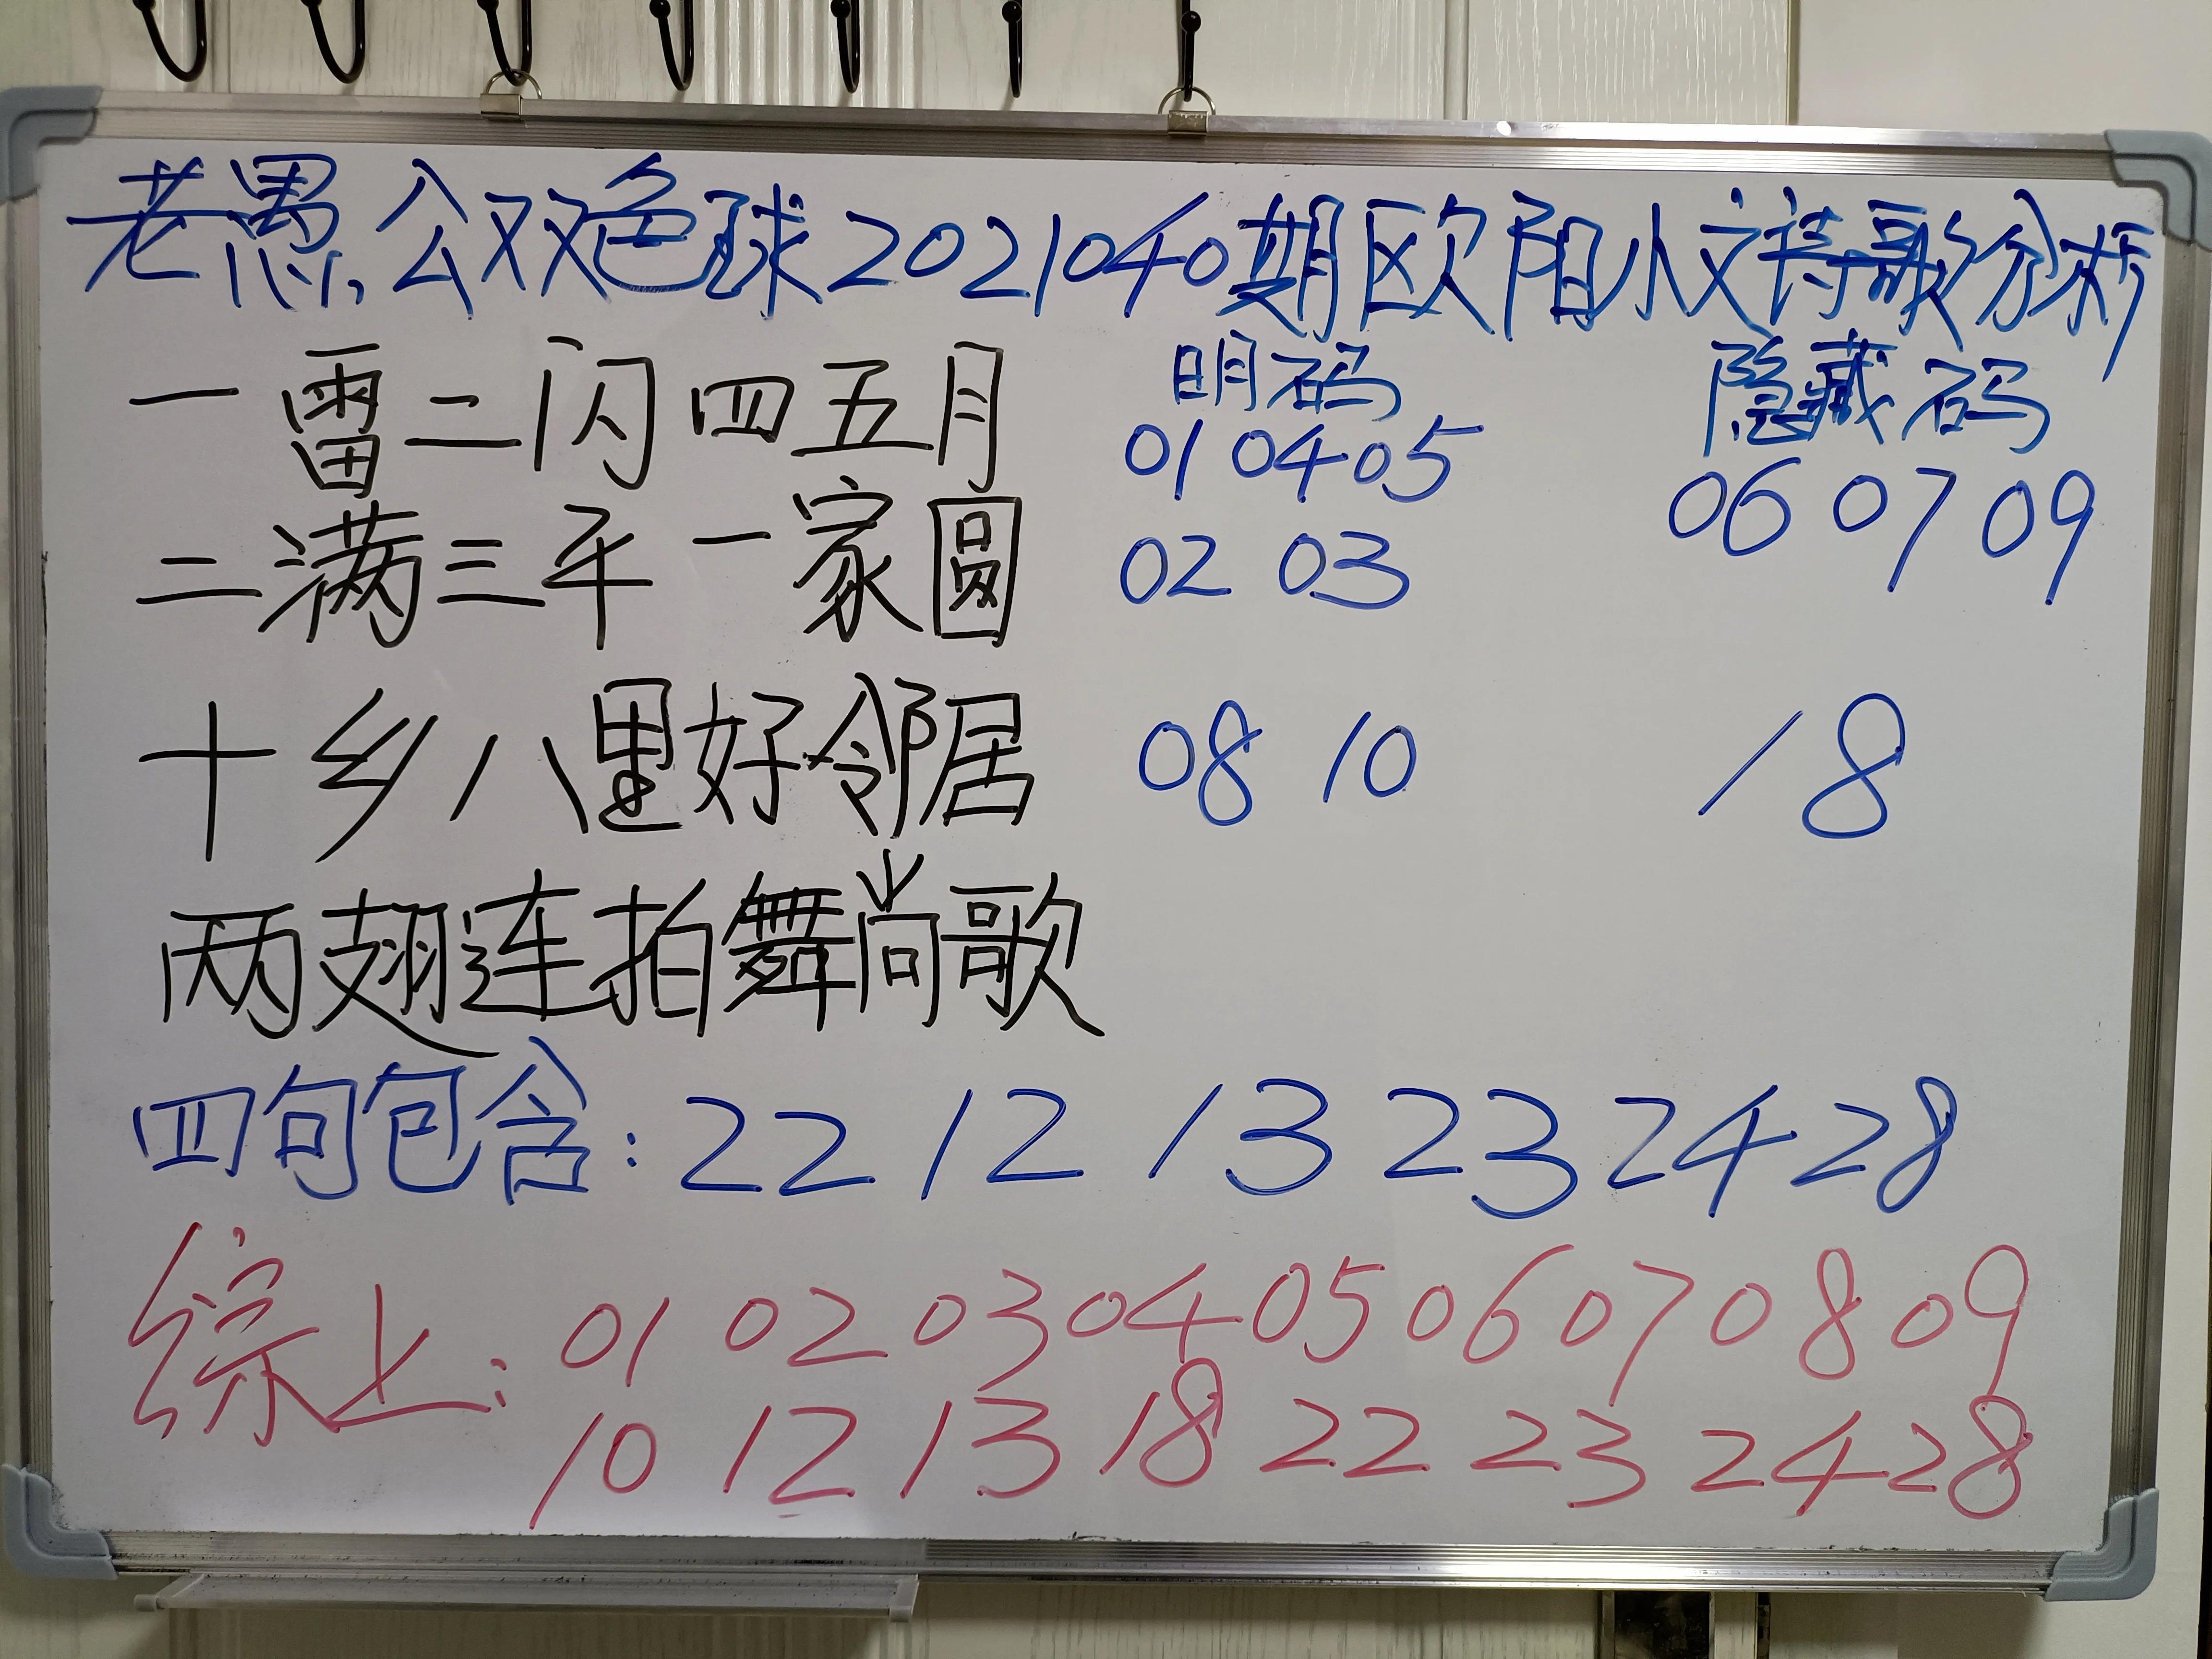 老愚公双色球2021040期欧阳小文诗歌分析
明码 隐藏码
一雷二闪四五月 01 04 05 06 07 09
二满三平一家圆 02 03
十乡八里好邻居 08 10 18
两翅连拍舞尚歌
四句包含:22 12 13 23 24 28
综上:01 02 03 04 05 06 07 08 09
10 12 13 18 22 23 24 28